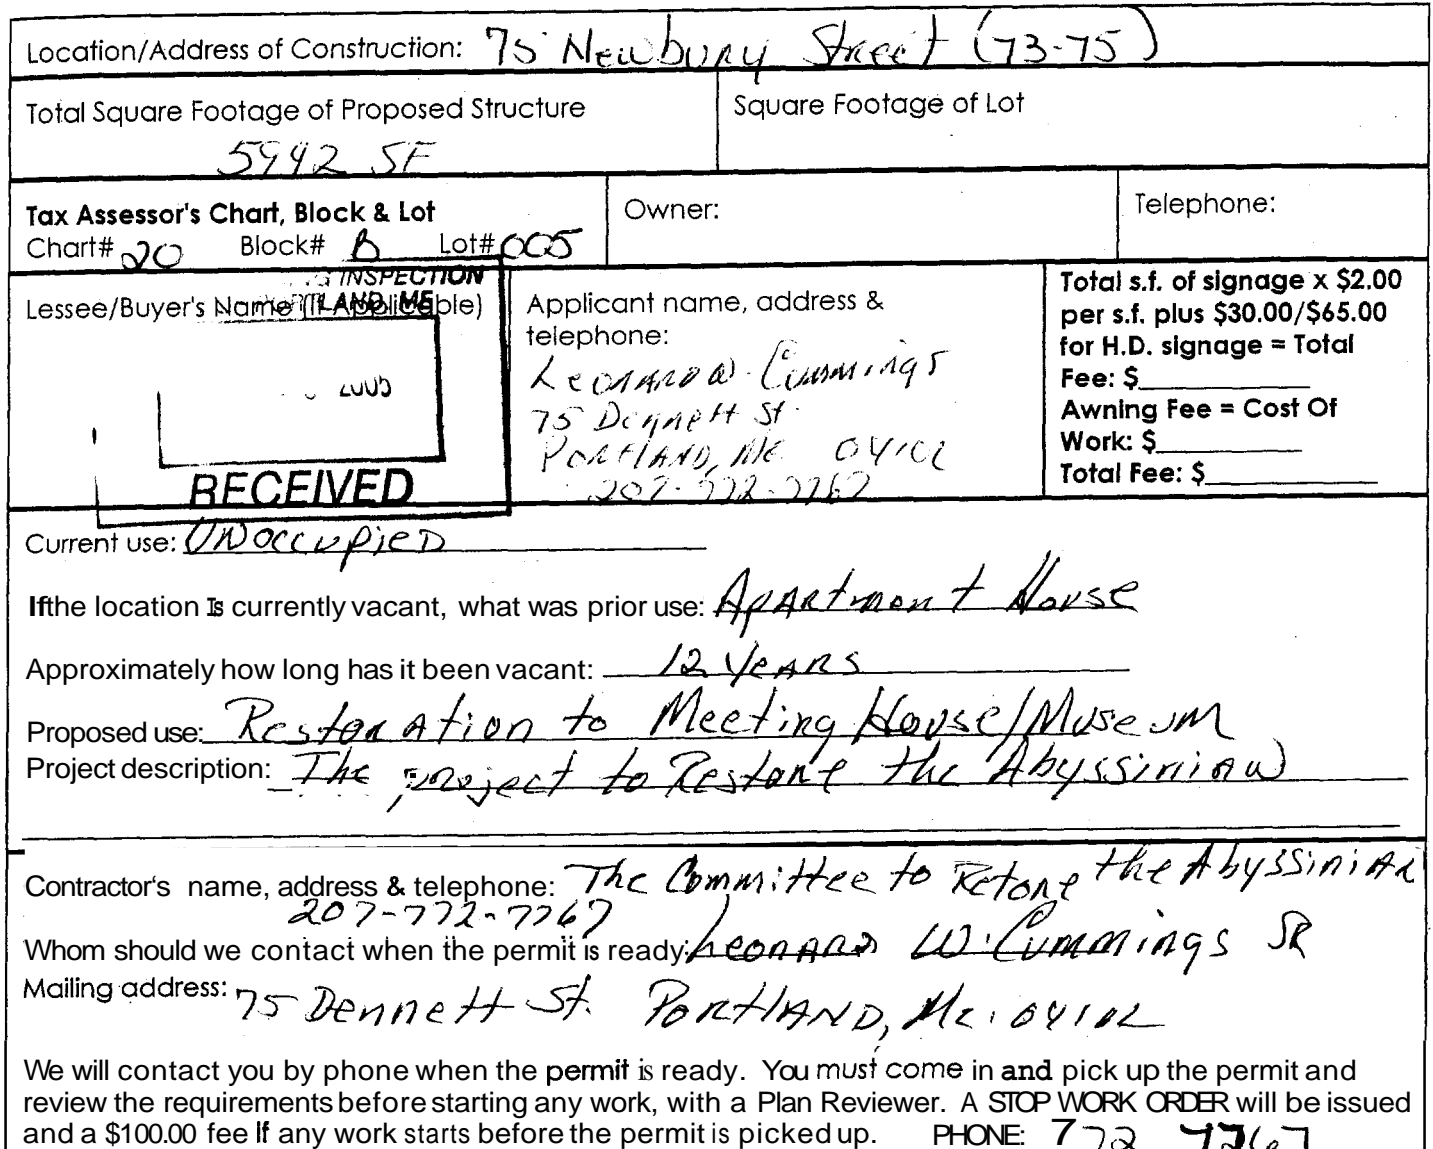 Location/Address of Construction: 75 Newbury Street (73-75)
Total Square Footage of Proposed Structure
5942 SF
Square Footage of Lot
Tax Assessor's Chart, Block & Lot
Chart# 20 Block# B Lot# 005
Owner:
Telephone:
INSPECTION
LAND, ME
Lessee/Buyer's Name (If Applicable)
2005
RECEIVED
Applicant name, address &
telephone:
Leonard W. Cummings
75 Dennett St.
Portland, Me. 04102
207-772-7767
Total s.f. of signage x $2.00
per s.f. plus $30.00/$65.00
for H.D. signage = Total
Fee: $
Awning Fee = Cost Of
Work: $
Total Fee: $
Current use: Unoccupied
If the location Is currently vacant, what was prior use: Apartment House
Approximately how long has it been vacant: 12 Years
Proposed use: Restoration to Meeting House/Museum
Project description: The project to Restore the Abyssinian
Contractor's name, address & telephone: The Committee to Retore the Abyssinian
207-772-7767
Whom should we contact when the permit is ready: Leonard W. Cummings SR
Mailing address: 75 Dennett St. Portland, Me. 04102
We will contact you by phone when the permit is ready. You must come in and pick up the permit and
review the requirements before starting any work, with a Plan Reviewer. A STOP WORK ORDER will be issued
and a $100.00 fee If any work starts before the permit is picked up. PHONE: 772 7767